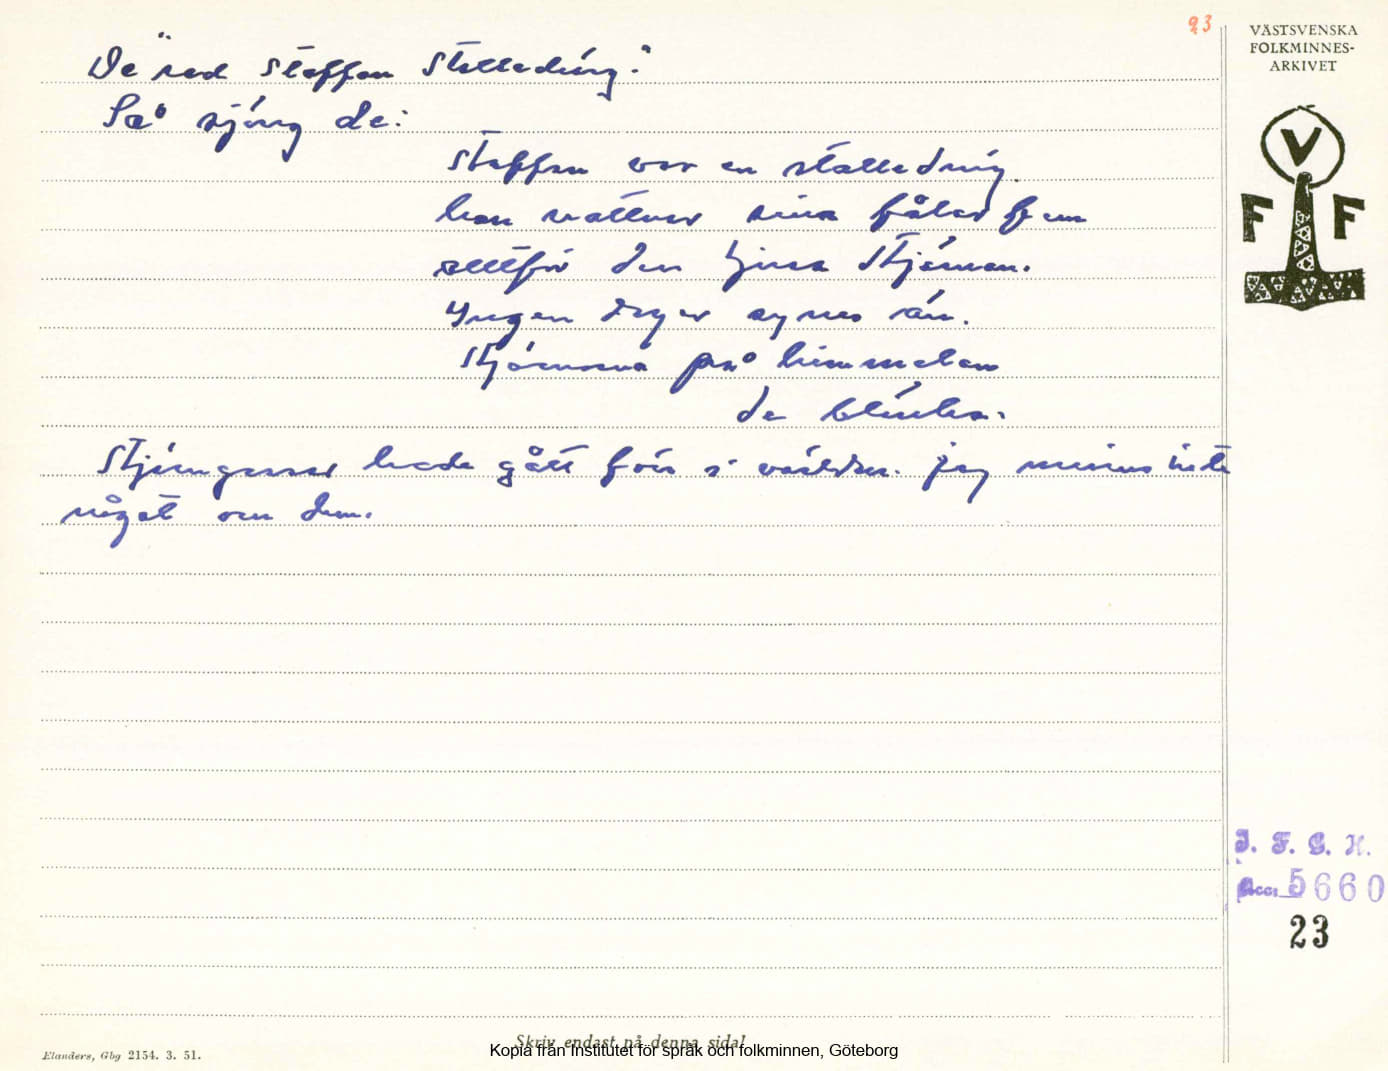 23
VÄSTSVENSKA
FOLKMINNES-
ARKIVET
V
F F
De "red Staffan Stalledräng."
Så sjöng de:
Staffan var en stalledräng.
han vattnar sina fålar fem
allt för den ljusa Stjärnan.
Yngen dager synes än.
Stjärnorna på himmelen
de blinka.
Stjärngossar hade gått förr i världen. jag minns inte
något om dem.
I. F. G. H.
Acc. 5660
23
Skriv endast på denna sida!
Kopia från Institutet för språk och folkminnen, Göteborg
Elanders, Gbg 2154. 3. 51.